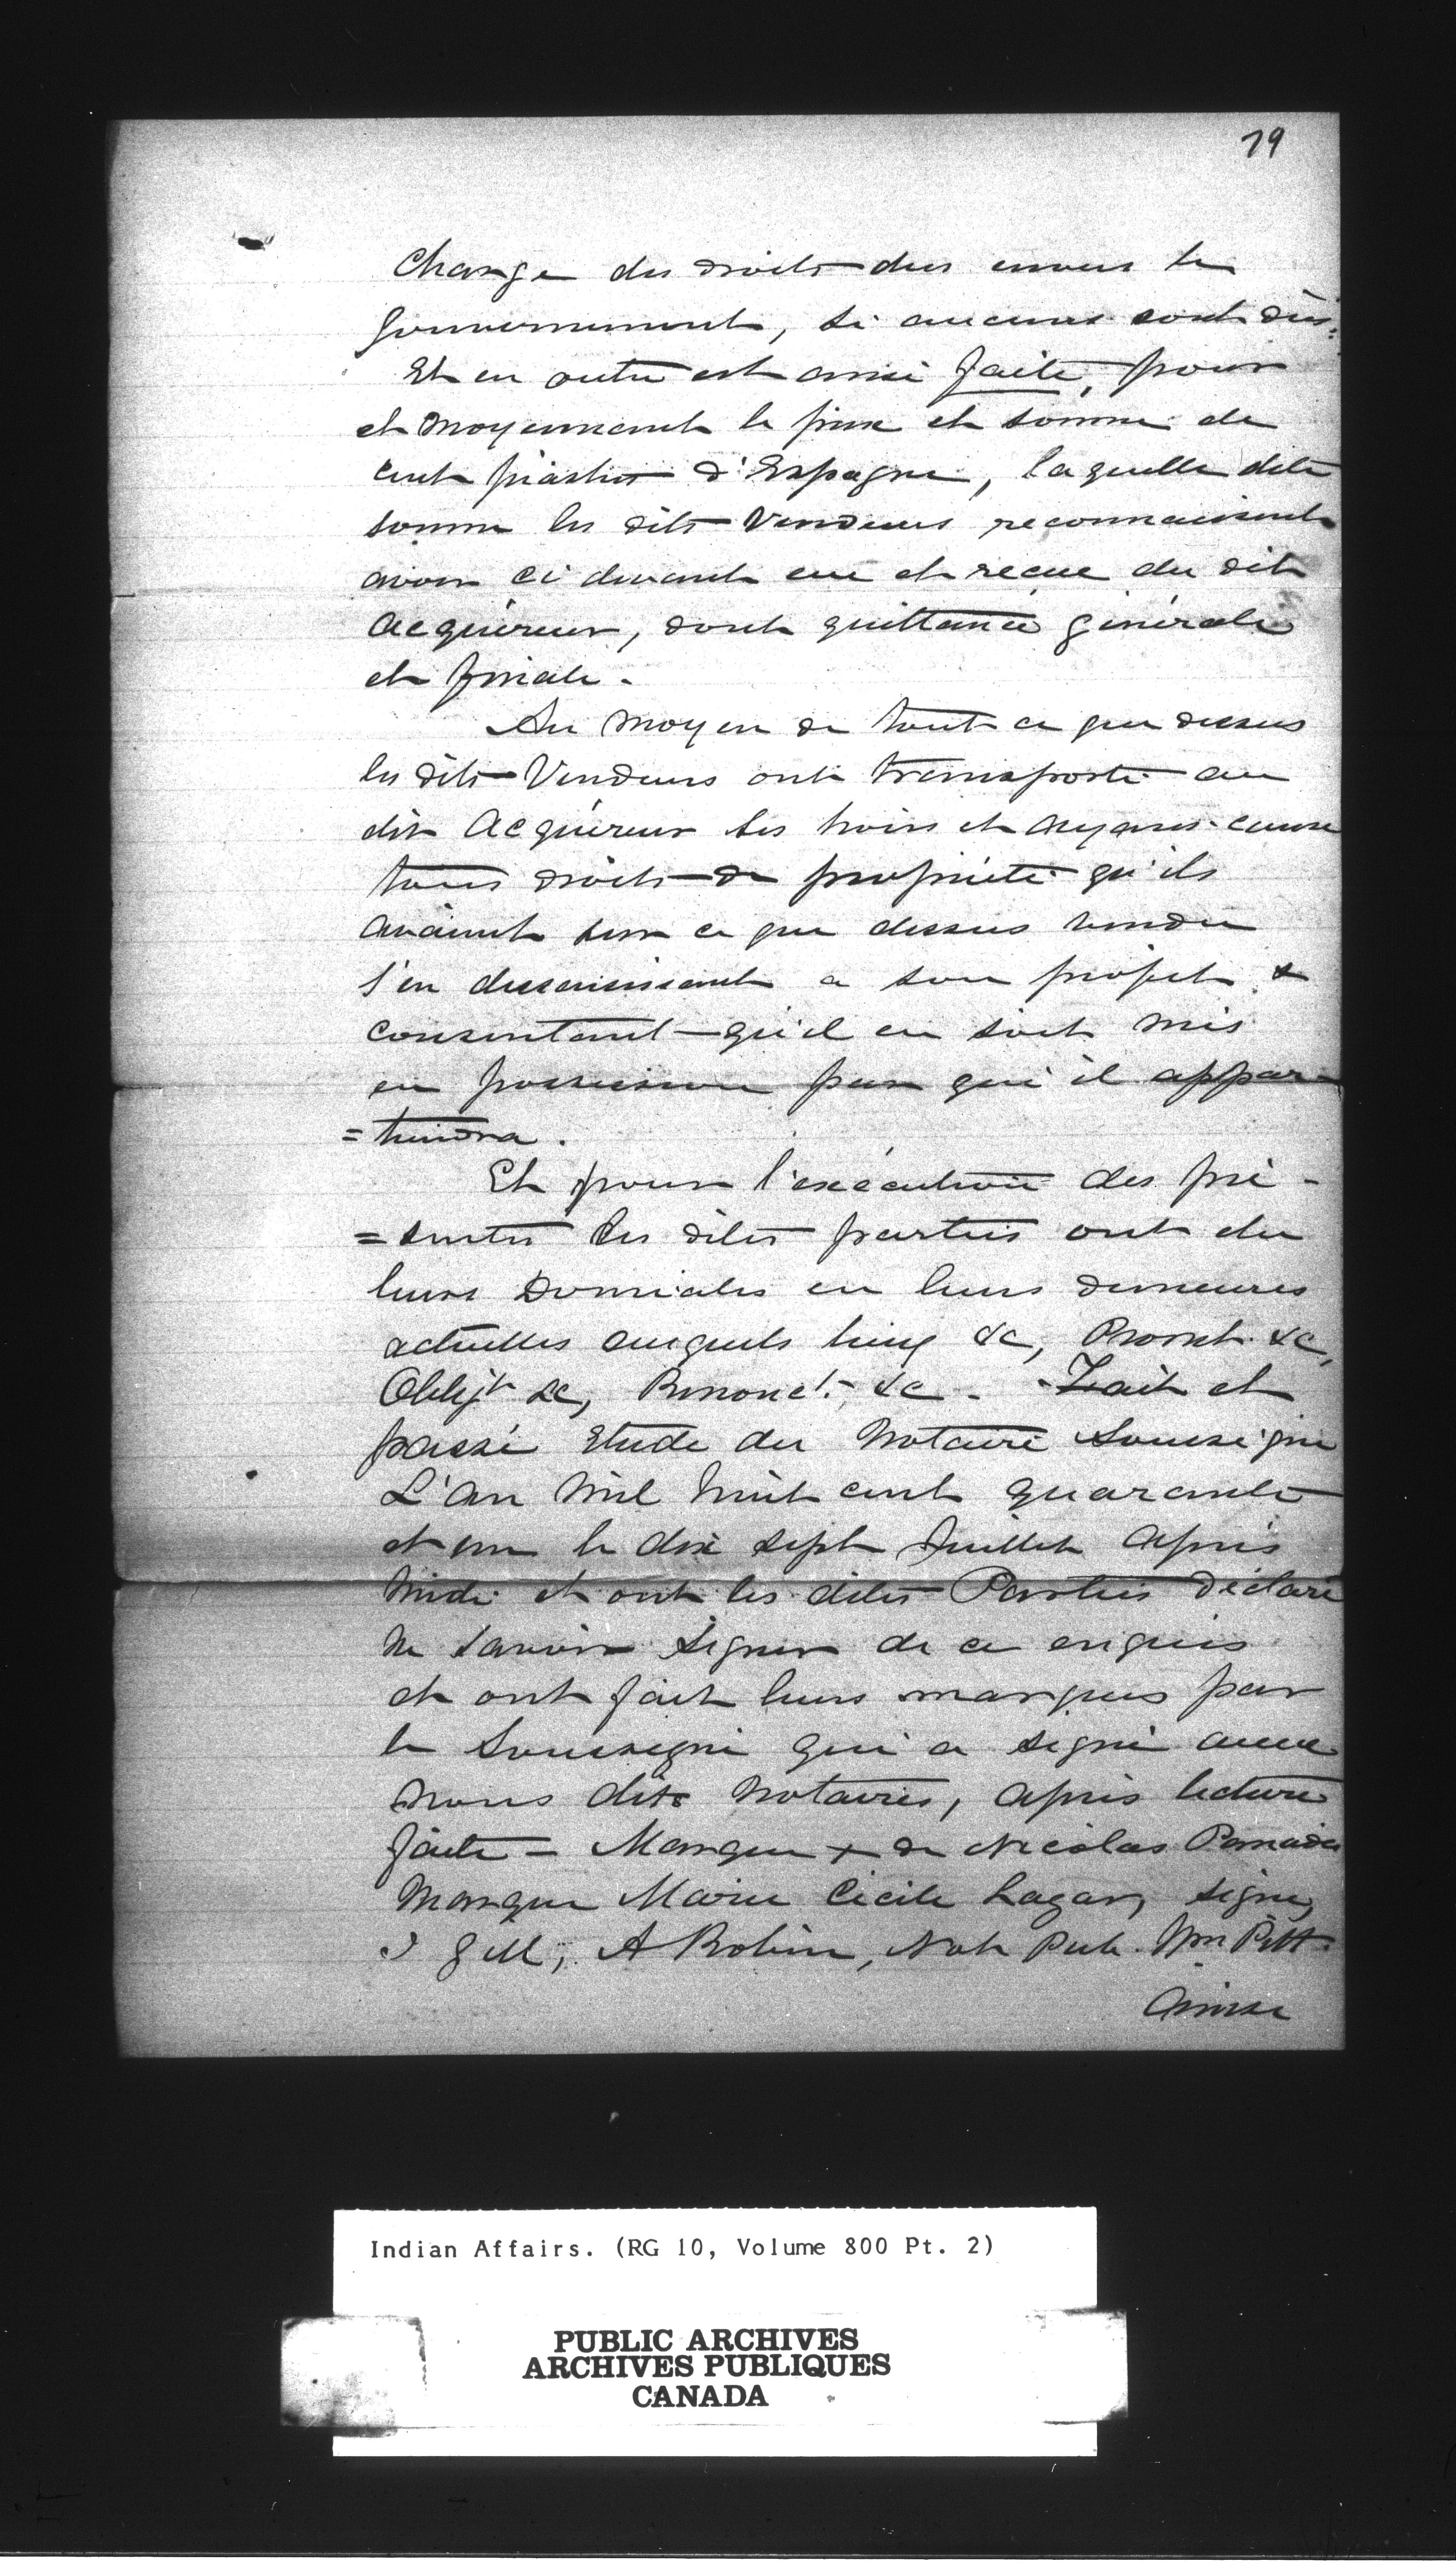 79
Charge des droits dus envers le
Gouvernement, si aucuns sont dûs.
Et en outre est ainsi faite, pour
et moyennant le prix et somme de
cent piastres d'Espagne, laquelle dite
somme les dits Vendeurs reconnaissent
avoir ci devant eue et reçue du dit
Acquéreur, dont quittance générale
et finale.
Au moyen de tout ce que dessus
les dits Vendeurs ont transporté au
dit Acquéreur ses hoirs et ayans-cause
tous droits de propriété qu'ils
avaient sur ce que dessus vendu
s'en dessaisissant a son profit &
consentant qu'il en soit mis
en possession par qui il appar-
=tiendra.
Et pour l'exécution des pré-
=sentes les dites parties ont élu
leurs Domiciles en leurs demeures
actuelles auxquels lieux &c, Promt. &c,
Obligt &c, Renonct. &c - Fait et
passé Etude du Notaire Soussigné
L'an Mil huit cent quarante
et un le dix sept Juillet après
Midi et ont les dites Parties déclaré
ne savoir signer de ce enquis
et ont fait leurs marques par
le Soussigné qui a signé avec
nous dits Notaires, après lecture
faite - Marque + de Nicolas Panadis
Marque Marie Cécile Lagar, signé,
I Gill, A Robin, Not Pub. Wm Pitt
Indian Affairs. (RG 10, Volume 800 Pt. 2)
PUBLIC ARCHIVES
ARCHIVES PUBLIQUES
CANADA